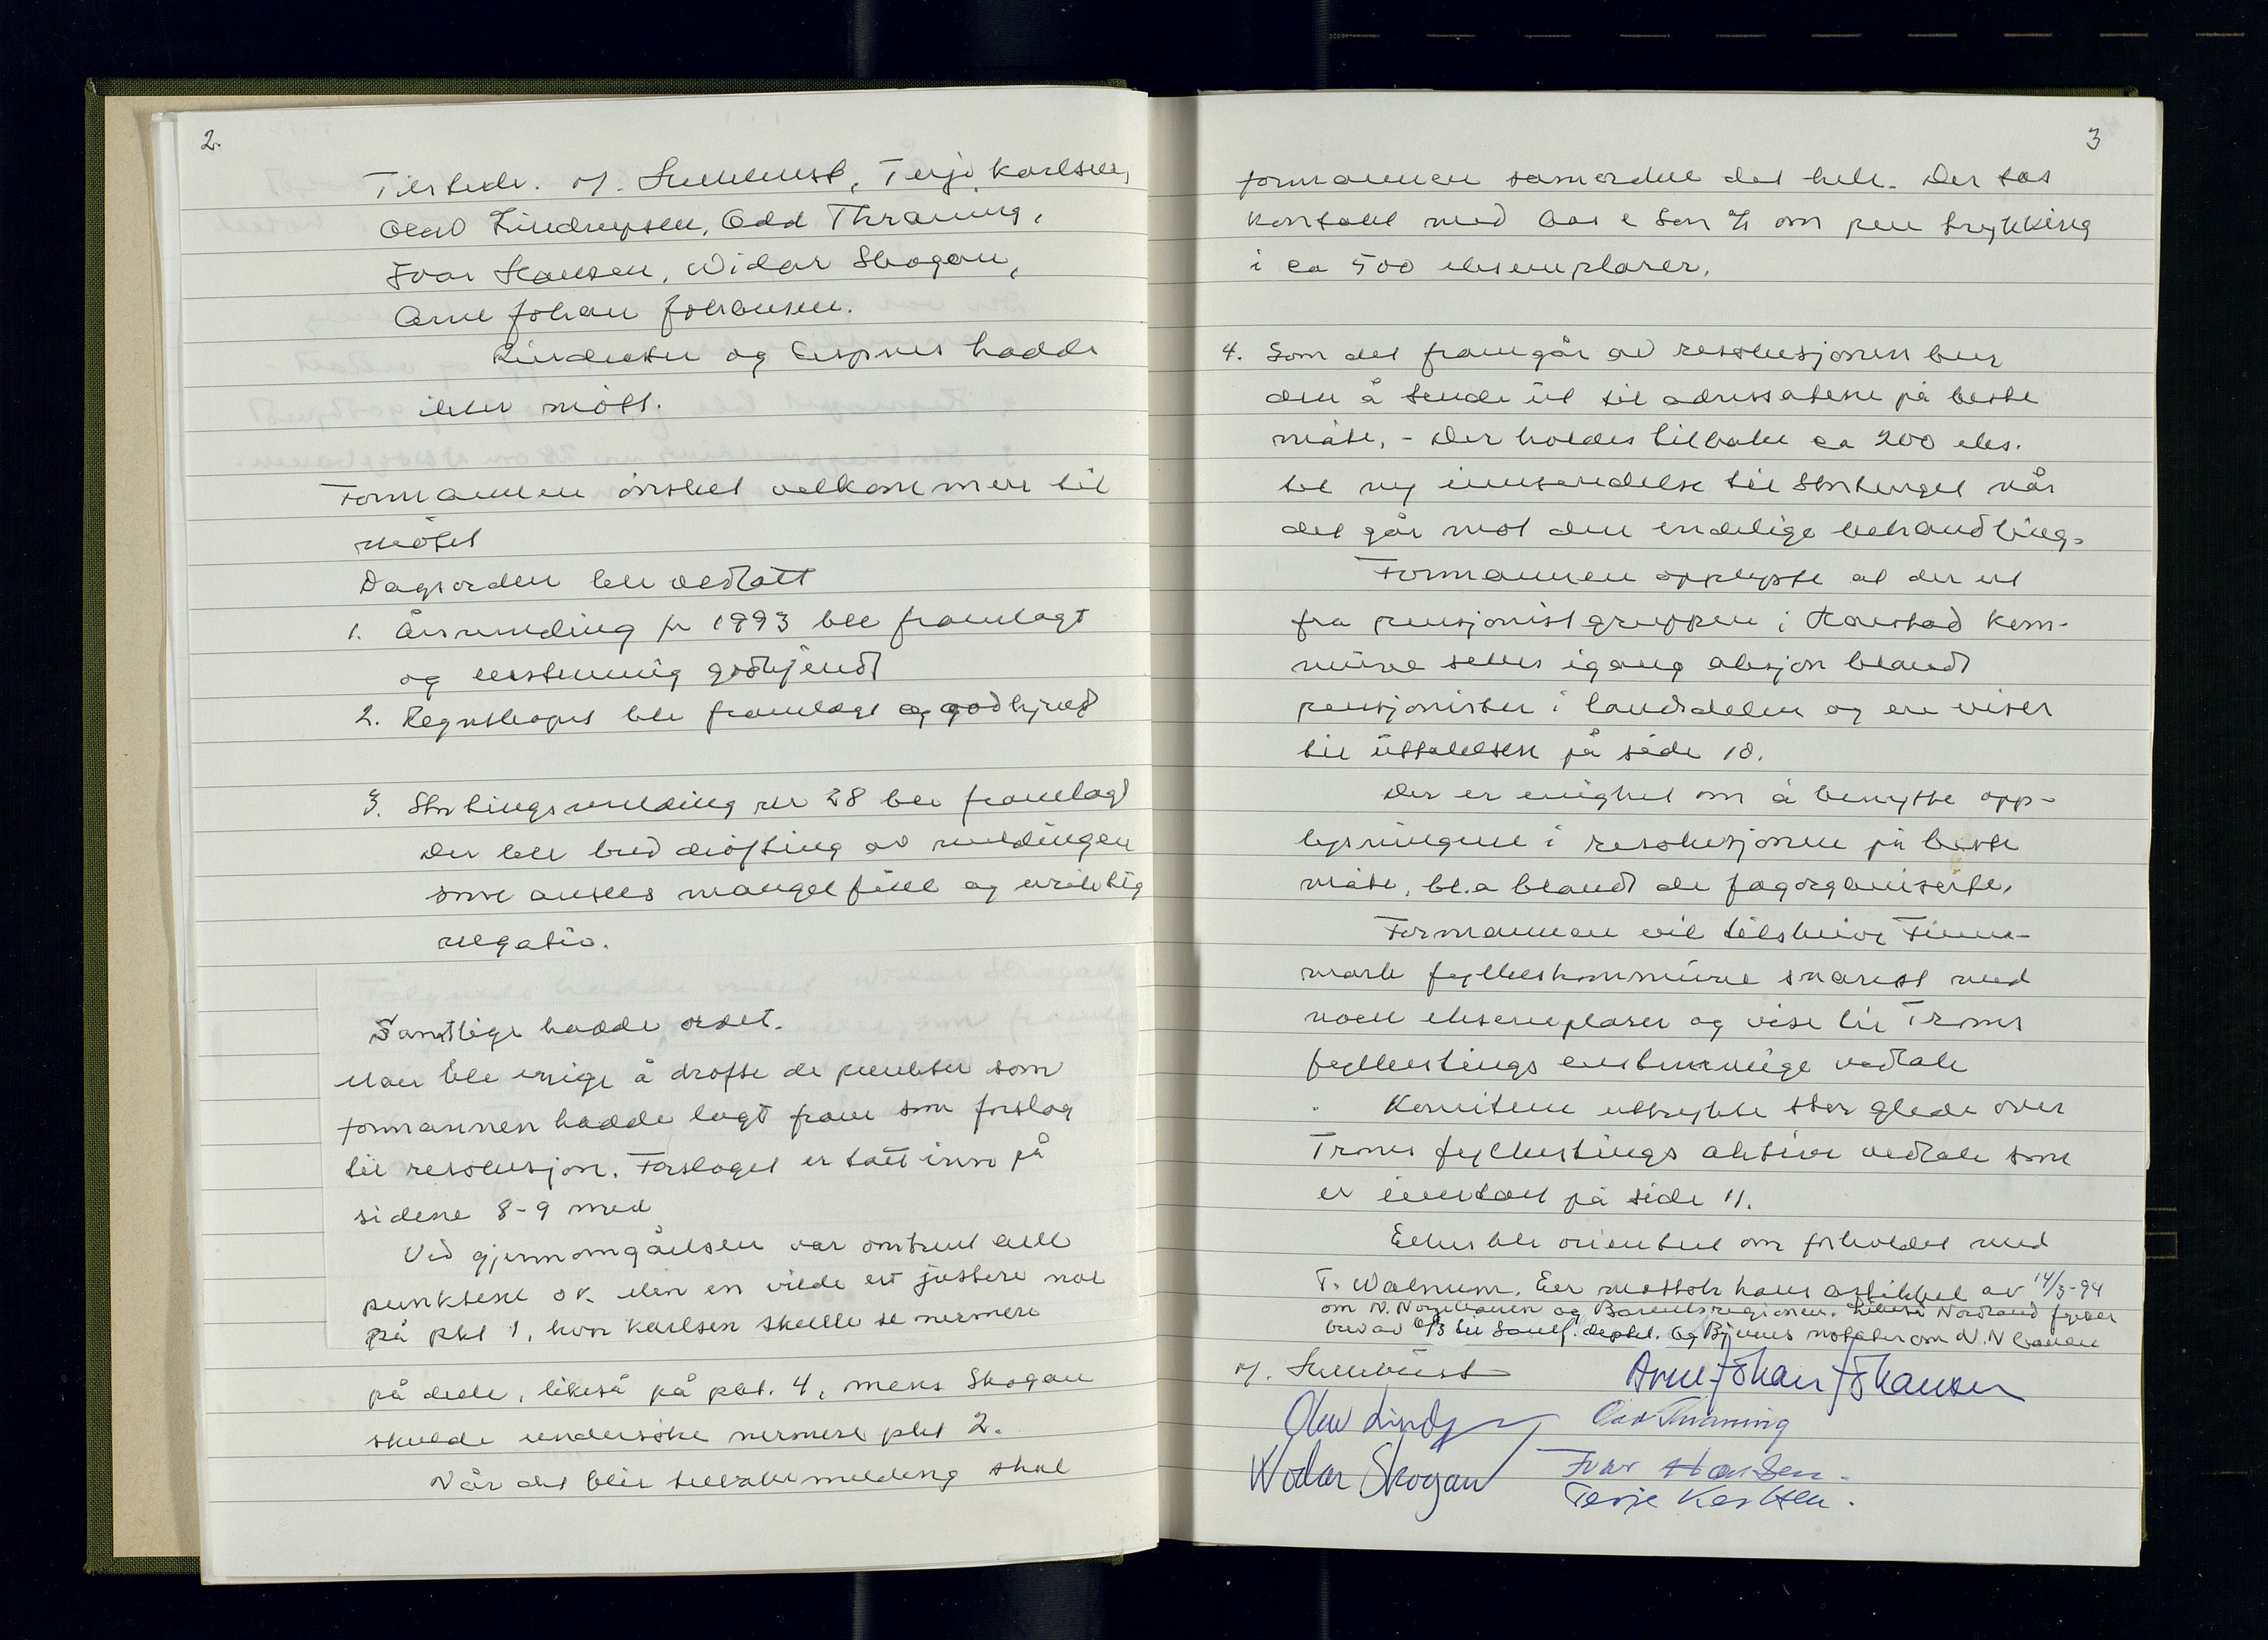 2.
Tilstede. M. Sundqvist, Terje Karlsen,
Olav Lindrupsen, Odd Thraning,
Ivar Hansen, Widar Skogan,
Arne Johan Johansen.
og Espnes hadde
ikke møtt.
Formannen ønsket velkommen til
møtet
Dagsorden ble vedtatt
1. Årsmelding for 1993 ble framlagt
og enstemmig godkjendt
2. Regnskapet ble framlagt og godkjend
3. Stortingsmelding nr 28 ble framlagt
Der ble bred drøfting av meldingen
som ansees mangelfull og uriktig
negativ.
Samtlige hadde ordet.
Man ble enige å drøfte de punkter som
formannen hadde lagt fram som forslag
til resolusjon. Forslaget er tatt inn på
sidene 8-9 med
Ved gjennomgåelsen var omtrent alle
punktene ok. Men en vilde evt justere noe
på pkt 1, hvor Karlsen skulle se nermere
på dede, likeså på pkt. 4, mens Skogan
skulde undersøke nermere pkt 2.
Når det blir tilbakemelding skal
3
formannen samordne det hele. Der tas
kontakt med Aas & Søn A/S om pen trykking
i ca 500 eksemplarer.
4. Som det framgår av resolusjonen blir
den å sende ut til adressatene på beste
måte. - Der holdes tilbake ca 200 eks.
til ny innsendelse til Stortinget når
det går mot den endelige behandling.
Formannen opplyste at der ut
fra pensjonistgruppen i Harstad kom-
mune settes igang aksjon blandt
pensjonister i landsdelen og en viser
til uttalelsen på side 10.
Der er enighet om å benytte opp-
lysningene i resolusjonen på beste
måte, bl.a blandt de fagorganiserte.
Formannen vil tilskrive Finn-
mark fylkeskommune snarest med
noen eksemplarer og vise til Troms
fylkestings enstemmige vedtak
Komiteen uttrykte stor glede over
Troms fylkestings aktive vedtak som
er inntatt på side 11.
Ellers ble orientert om forholdet med
T. Walnum. En mottok hans artikkel av 14/3-94
om N. Norgebanen og Barentsregionen. Likeså Nordland fylkes
brev av 8/3 til Samf. deptet. Og Bjerees notater om N.N banen
M. Sundqvist
Arne Johan Johansen
Olav Lindr
Odd Thraning
Widar Skogan
Ivar Hansen.
Terje Karlsen.